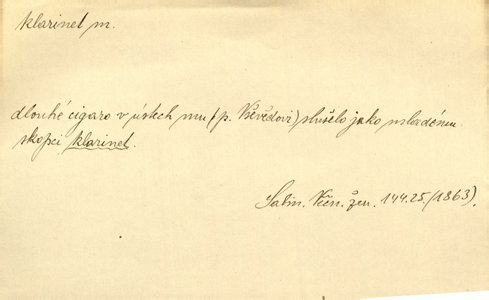 klarinet m.
dlouhé cigaro v ústech mu (p. Vševědovi) slušelo jako mladému
skopci klarinet.
Sabin. Věn. žen. 144.25. (1863).